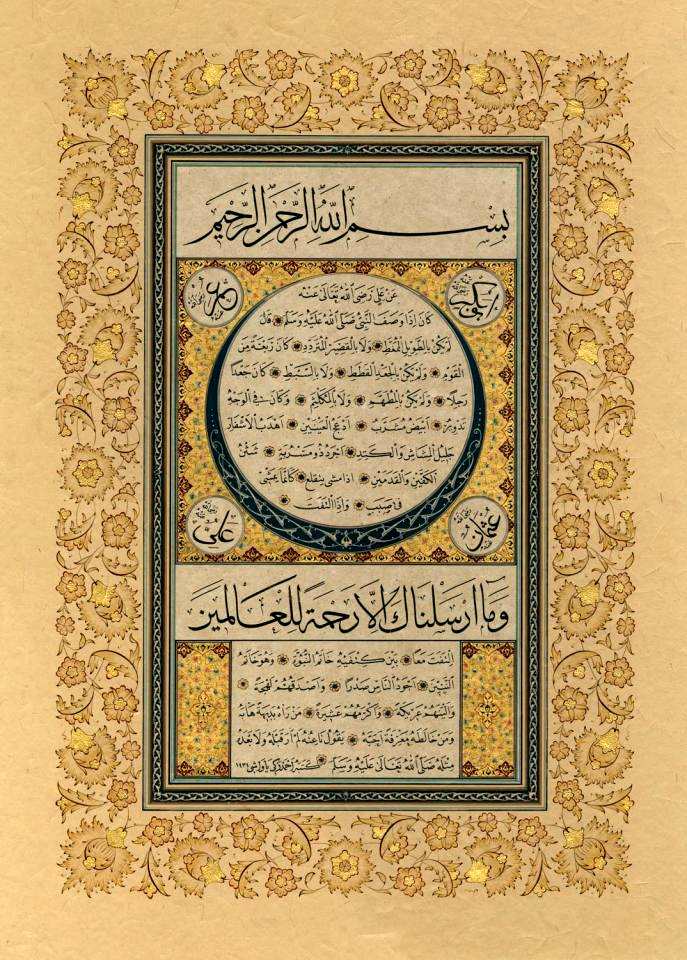 بِسْمِ اللّٰهِ الرَّحْمٰنِ الرَّحِيمِ
ابو بكر
عمر
عَنْ عَلِيٍّ رَضِيَ اللّٰهُ تَعَالَى عَنْهُ
كَانَ إِذَا وَصَفَ النَّبِيَّ صَلَّى اللّٰهُ عَلَيْهِ وَسَلَّمَ قَالَ
لَمْ يَكُنْ بِالطَّوِيلِ الْمُمَّغِطِ وَلَا بِالْقَصِيرِ الْمُتَرَدِّدِ كَانَ رَبْعَةً مِنَ
الْقَوْمِ وَلَمْ يَكُنْ بِالْجَعْدِ الْقَطَطِ وَلَا بِالسَّبِطِ كَانَ جَعْدًا
رَجِلًا وَلَمْ يَكُنْ بِالْمُطَهَّمِ وَلَا بِالْمُكَلْثَمِ وَكَانَ فِي الْوَجْهِ
تَدْوِيرٌ أَبْيَضُ مُشْرَبٌ أَدْعَجُ الْعَيْنَيْنِ أَهْدَبُ الْأَشْفَارِ
جَلِيلُ الْمُشَاشِ وَالْكَتَدِ أَجْرَدُ ذُو مَسْرُبَةٍ شَثْنُ
الْكَفَّيْنِ وَالْقَدَمَيْنِ إِذَا مَشَى يَنْقَلِعُ كَأَنَّمَا يَمْشِي
فِي صَبَبٍ وَإِذَا الْتَفَتَ
عثمان
علي
وَمَا أَرْسَلْنَاكَ إِلَّا رَحْمَةً لِلْعَالَمِينَ
الْتَفَتَ مَعًا بَيْنَ كَتِفَيْهِ خَاتَمُ النُّبُوَّةِ وَهُوَ خَاتَمُ
النَّبِيِّينَ أَجْوَدُ النَّاسِ صَدْرًا وَأَصْدَقُهُمْ لَهْجَةً
وَأَلْيَنُهُمْ عَرِيكَةً وَأَكْرَمُهُمْ عَشِيرَةً مَنْ رَآهُ بَدِيهَةً هَابَهُ
وَمَنْ خَالَطَهُ مَعْرِفَةً أَحَبَّهُ يَقُولُ نَاعِتُهُ لَمْ أَرَ قَبْلَهُ وَلَا بَعْدَهُ
مِثْلَهُ صَلَّى اللّٰهُ تَعَالَى عَلَيْهِ وَسَلَّمَ كتبه احمد